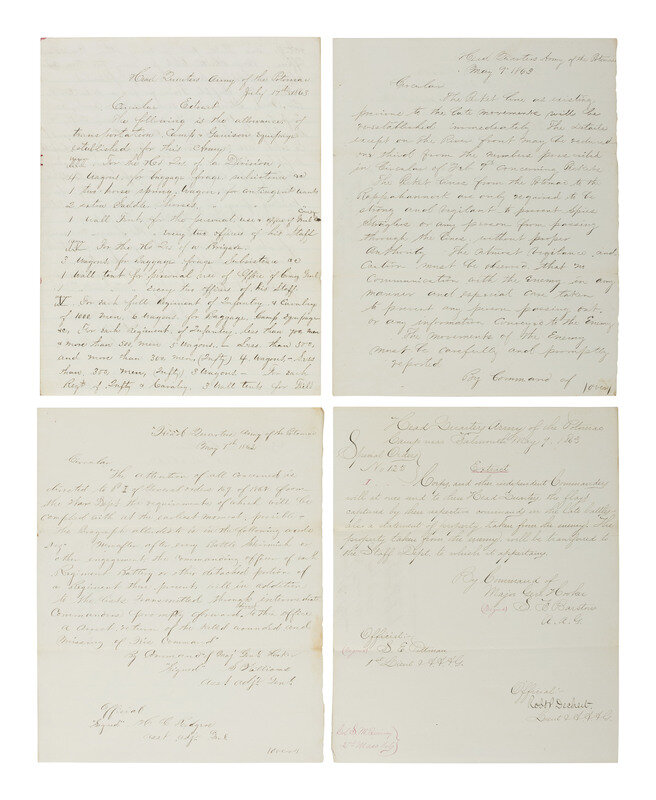 Head Quarters Army of the Potomac
July 17th 1863
Circular Extract
The following is the allowance of
transportation, Camp & Garrison Equipage
established for this Army.
III. For Hd Qrs of a Division,
4 Wagons, for baggage forage subsistence &c
1 two horse spring wagon, for contingent wants
2 extra Saddle horses,
1 Wall Tent, for the personal use & office of
1 " " every two officers of his Staff
IV For the Hd Qrs of a Brigade.
3 Wagons for baggage forage Subsistence &c
1 Wall tent for personal use & Office of Comg Genl
1 " " every two officers of his Staff
V. For each full Regiment of Infantry & Cavalry
of 1000 men, 6 wagons for Baggage, Camp Equipage
&c. For each Regiment of Infantry less than 700 men
& more than 500 men 5 Wagons. Less than 500,
and more than 300 men, (Infty) 4 Wagons, Less
than 300 men, (Infty) 3 Wagons - For each
Regt of Infty & Cavalry, 3 Wall tents for Field
Head Quarters Army of the Potomac
May 9th 1863
Circular
The Picket Line as existing
previous to the late movements will be
reestablished immediately. The details
except on the River front may be reduced
one third from the numbers prescribed
in Circular of Feb concerning Pickets.
The Picket lines from the Potomac to the
Rappahannock are only required to be
strong and vigilant to prevent Spies
Smugglers or any person from passing
through the lines, without proper
Authority. The utmost vigilance and
Caution must be observed that no
Communication with the Enemy in any
manner and especial care taken
to prevent any person passing out,
or any information conveyed to the Enemy
The Movements of the Enemy
must be carefully and promptly
reported
By Command of
(over)
Head Quarters Army of the Potomac
May 1863
Circular
The attention of all concerned is
directed to Pr I of General orders 189 of 1862 from
the War Dept. the requirements of which will be
complied with at the earliest moment possible -
The Paragraph alluded to is in the following words
Hereafter
other engagement the Commanding officer of each
Regiment Battery or other detached portion of
a Regiment then present, will in addition
to the lists transmitted through intermediate
Commanders promptly forward to this office
a Report return of the killed wounded and
missing of his command
By Command of Maj Genl Hooker
Signed S Williams
Asst Adjt Genl
Official
Signed
Asst Adjt Genl
(over)
Head Quarters Army of the Potomac
Camp near Falmouth May 9 1863
Special Orders
No 125
Extract
I. Corps and other independent Commanders
will at once send to these Head Quarters, the flags
captured by their respective commands in the late battles
also a statement of property taken from the enemy. The
property taken from the enemy will be transferred to
the Staff Dept. to which it appertains
By Command of
Major Genl Hooker
Signed S. F. Barstow
A. A. G.
Official-
Signed S. E. Pittman
1st Lieut & A A A G.
Official-
Robt P. Dechert
Lieut & A A A G.